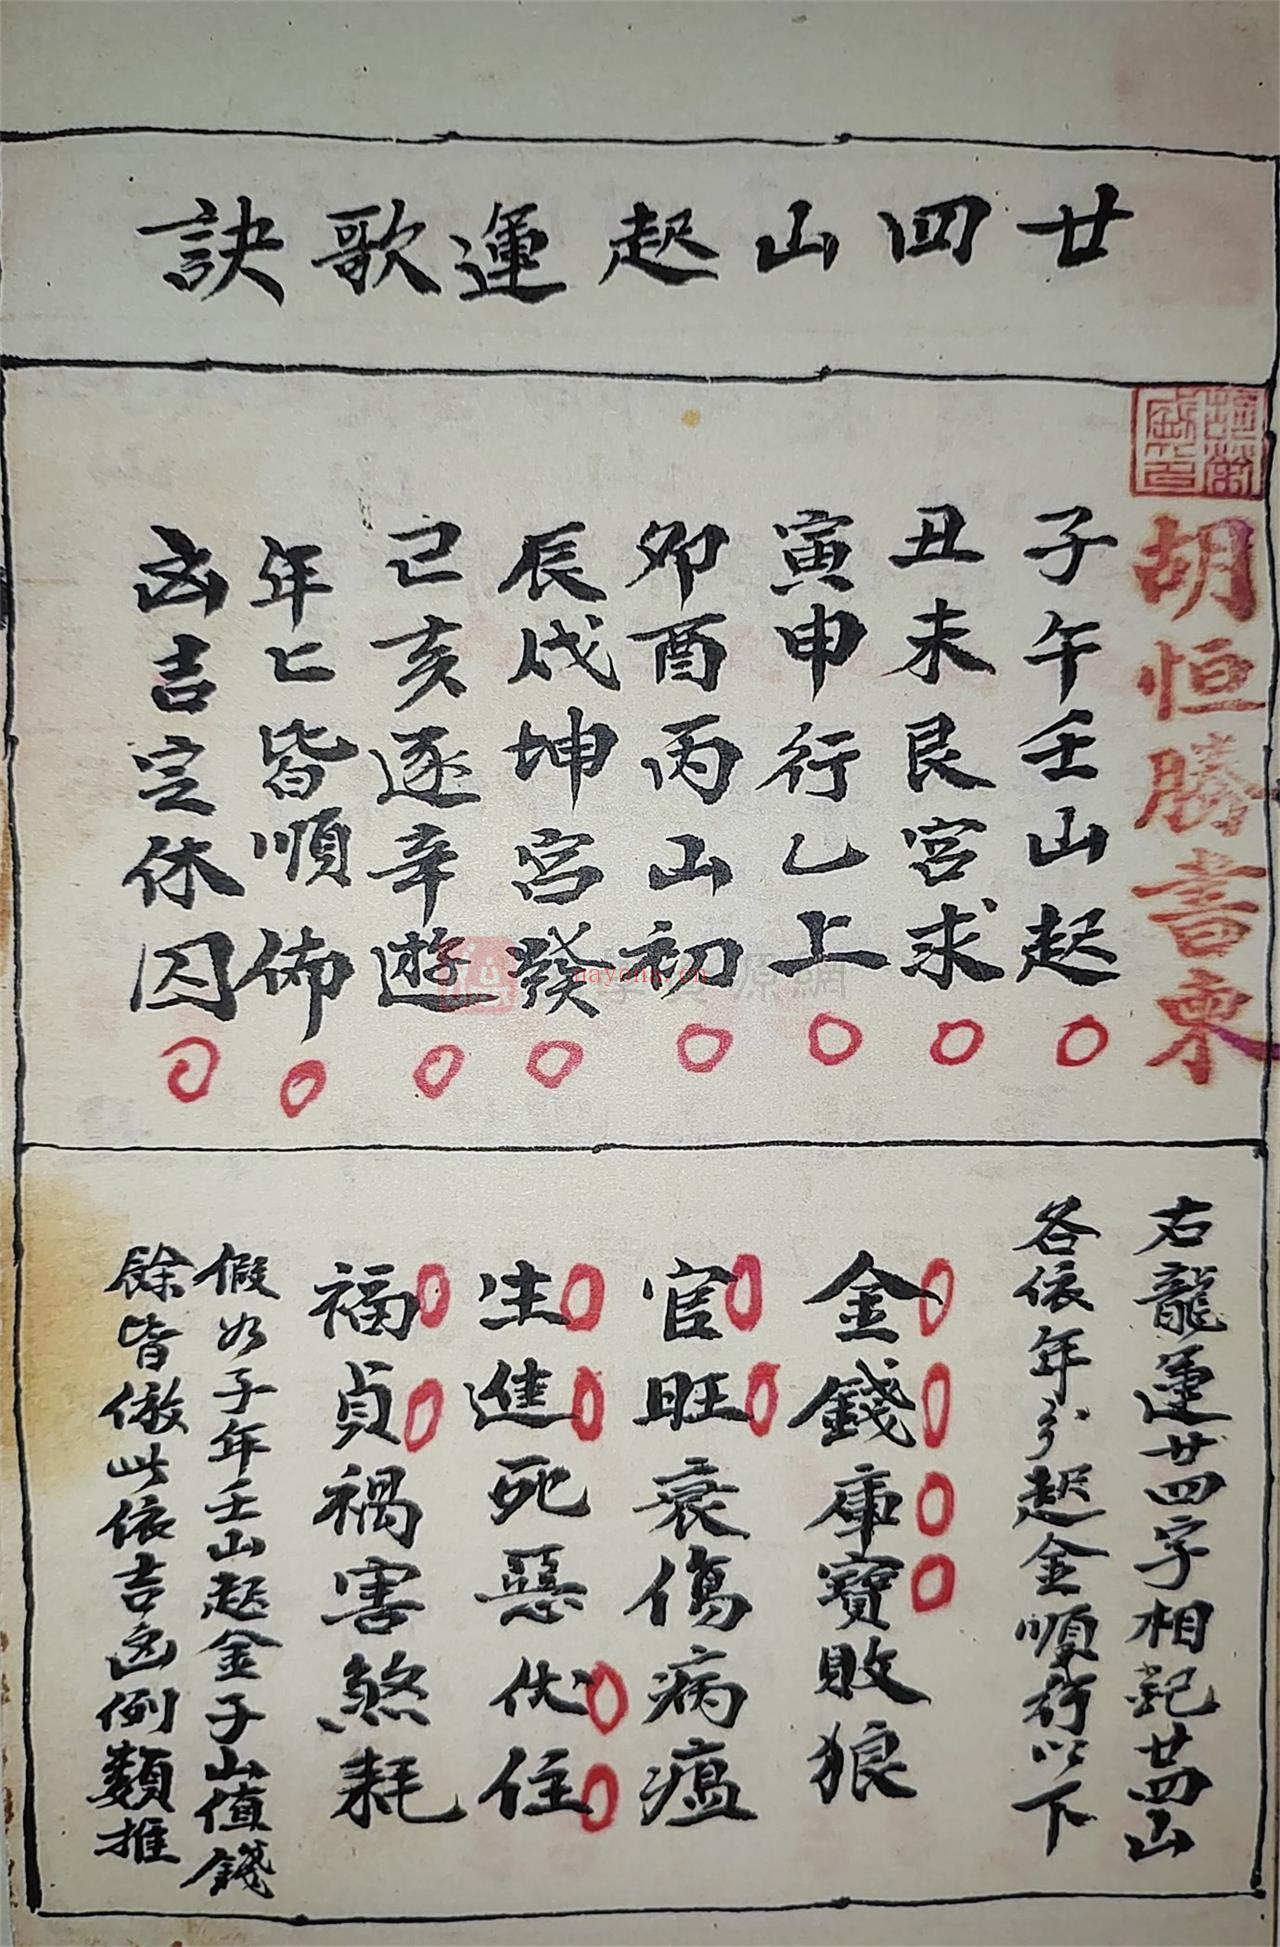 廿四山起運歌訣
胡恒勝書柬
子午壬山起
丑未艮宮求
寅申行乙上
卯酉丙山初
辰戌坤宮發
已亥逐辛遊
年匕皆順佈
凶吉定休囚
nayona.cn
右龍運廿四字相配廿四山
各依年分起金順行以下
金錢庫寶敗狼
官旺衰傷病瘟
生進死惡伏住
福貞禍害煞耗
假如子年壬山起金子山值錢
餘皆倣此依吉凶例類推